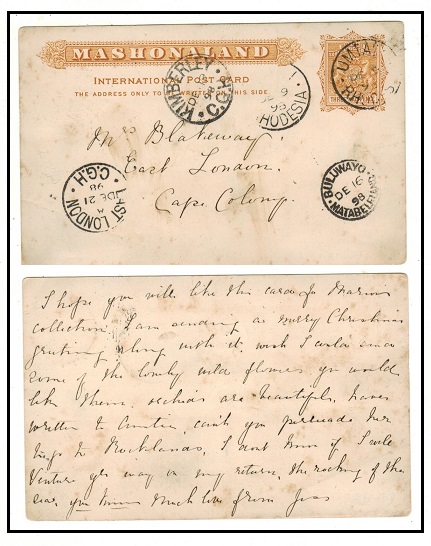 MASHONALAND
INTERNATIONAL POST CARD
THE ADDRESS ONLY TO BE WRITTEN ON THIS SIDE.
KIMBERLEY C.G.H.
9
98
RHODESIA
UMTALI
Mrs Blakeway.
East London.
Cape Colony.
EAST LONDON · C.G.H
DE 21
98
BULUWAYO
DE 16
98
MATABELELAND
I hope you will like this card for
collection, I am sending a Merry Christmas
greeting along with it. wish I could send
some of the lovely wild flowers you would
like them orchids are beautiful, have
written to Auntie can't you persuade her
to go to Rocklands, I dont know if I will
venture yr way on my return, the rocking of the
sea, you know Much love from